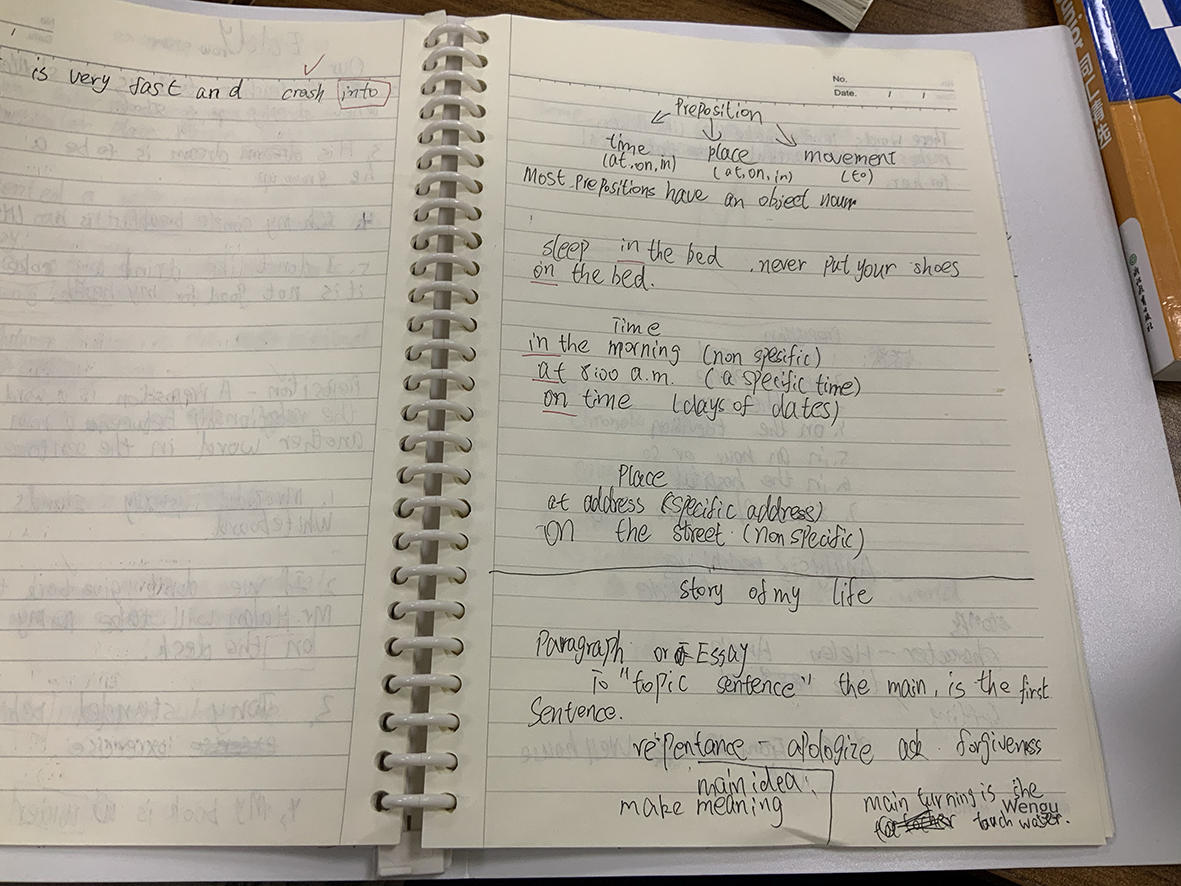 is very fast and crash into
No.
Date.
Preposition
time place movement
(at, on, in) (at, on, in) (to)
Most Prepositions have an object noun
sleep in the bed , never put your shoes
on the bed.
Time
in the morning (non spesific)
at 8:00 a.m. (a specific time)
on time (days of dates)
Place
at address (specific address)
on the street (non specific)
Story of my life
Paragraph or Essay
To "topic sentence" the main, is the first
Sentence.
repentance - apologize ask forgiveness
main idea:
make meaning
main turning is she
Wengu
touch water.
Junior
浙江教育出版社